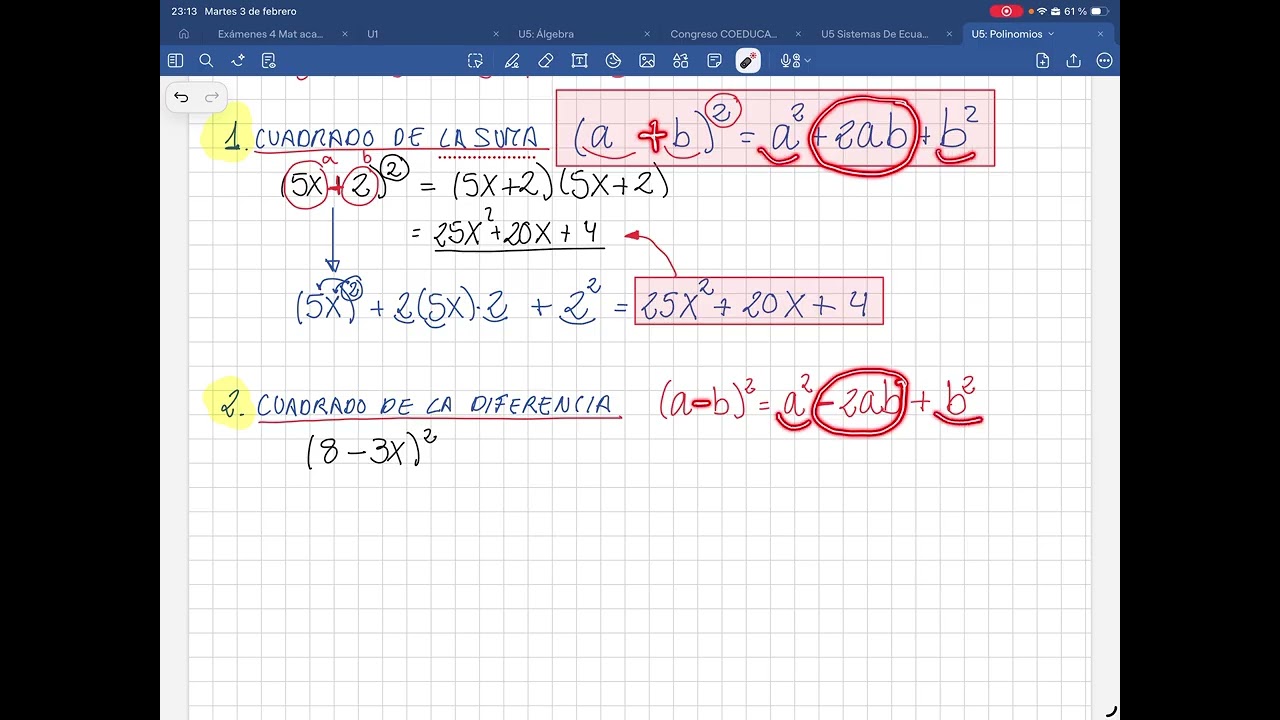 23:13 Martes 3 de febrero 61 %
Exámenes 4 Mat aca... U1 U5: Álgebra Congreso COEDUCA... U5 Sistemas De Ecua... U5: Polinomios
1. CUADRADO DE LA SUMA (a + b)² = a² + 2ab + b²
a b
(5x + 2)² = (5x+2)(5x+2)
= 25x² + 20x + 4
(5x)² + 2(5x)·2 + 2² = 25x² + 20x + 4
2. CUADRADO DE LA DIFERENCIA (a-b)² = a² - 2ab + b²
(8 - 3x)²